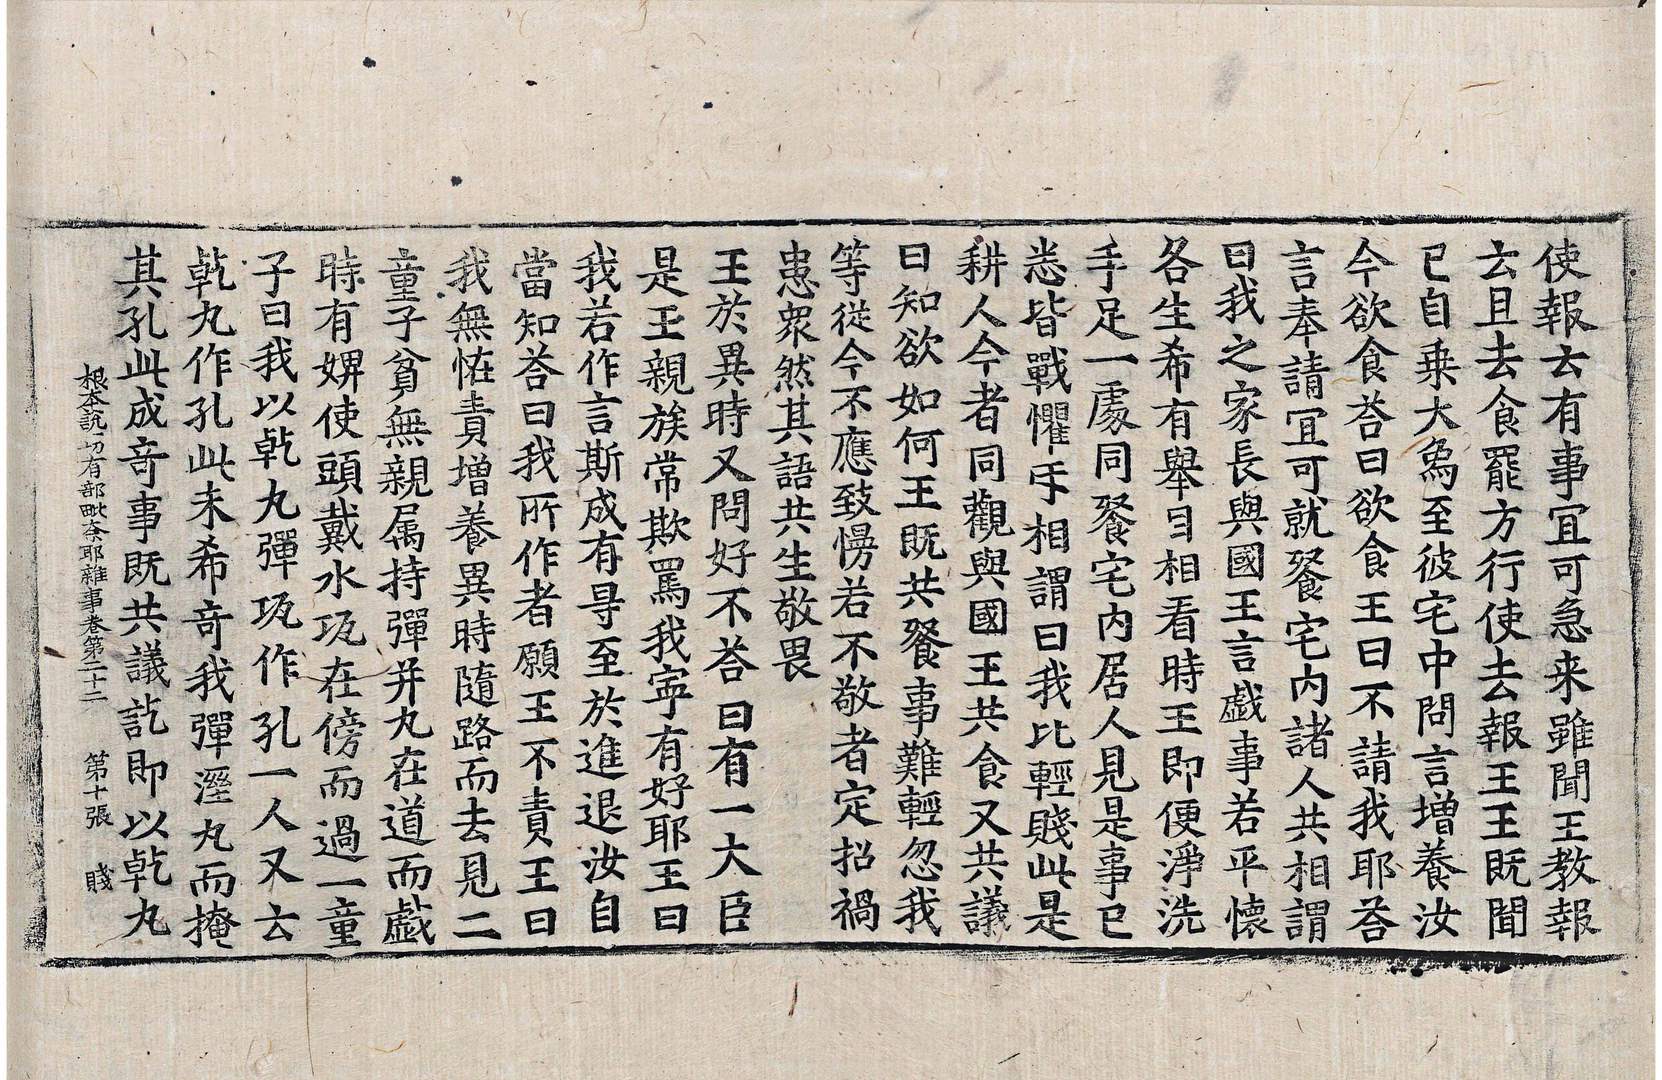 使報云有事宜可急来雖聞王教報
云且去食罷方行使去報王王既聞
已自乗大為至彼宅中問言增養汝
今欲食荅曰欲食王曰不請我耶荅
言奉請宜可就飡宅內諸人共相謂
曰我之家長與國王言戲事若平懷
各生希有舉目相看時王即便淨洗
手足一處同飡宅內居人見是事已
悉皆戰懼𢆯相謂曰我比輕賤此是
耕人今者同觀與國王共食又共議
曰知欲如何王既共飡事難輕忽我
等從今不應致慢若不敬者定招禍
患衆然其語共生敬畏
王於異時又問好不荅曰有一大臣
是王親族常欺罵我寧有好耶王曰
我若作言斯成有㝵至於進退汝自
當知荅曰我所作者願王不責王曰
我無恠責增養異時隨路而去見二
童子貧無親属持彈并丸在道而戲
時有婢使頭戴水瓨在傍而過一童
子曰我以乹丸彈瓨作孔一人又云
乹丸作孔此未希奇我彈溼丸而掩
其孔此成奇事既共議訖即以乹丸
根本說一切有部毗奈耶雜事卷第二十二　第十張　賤